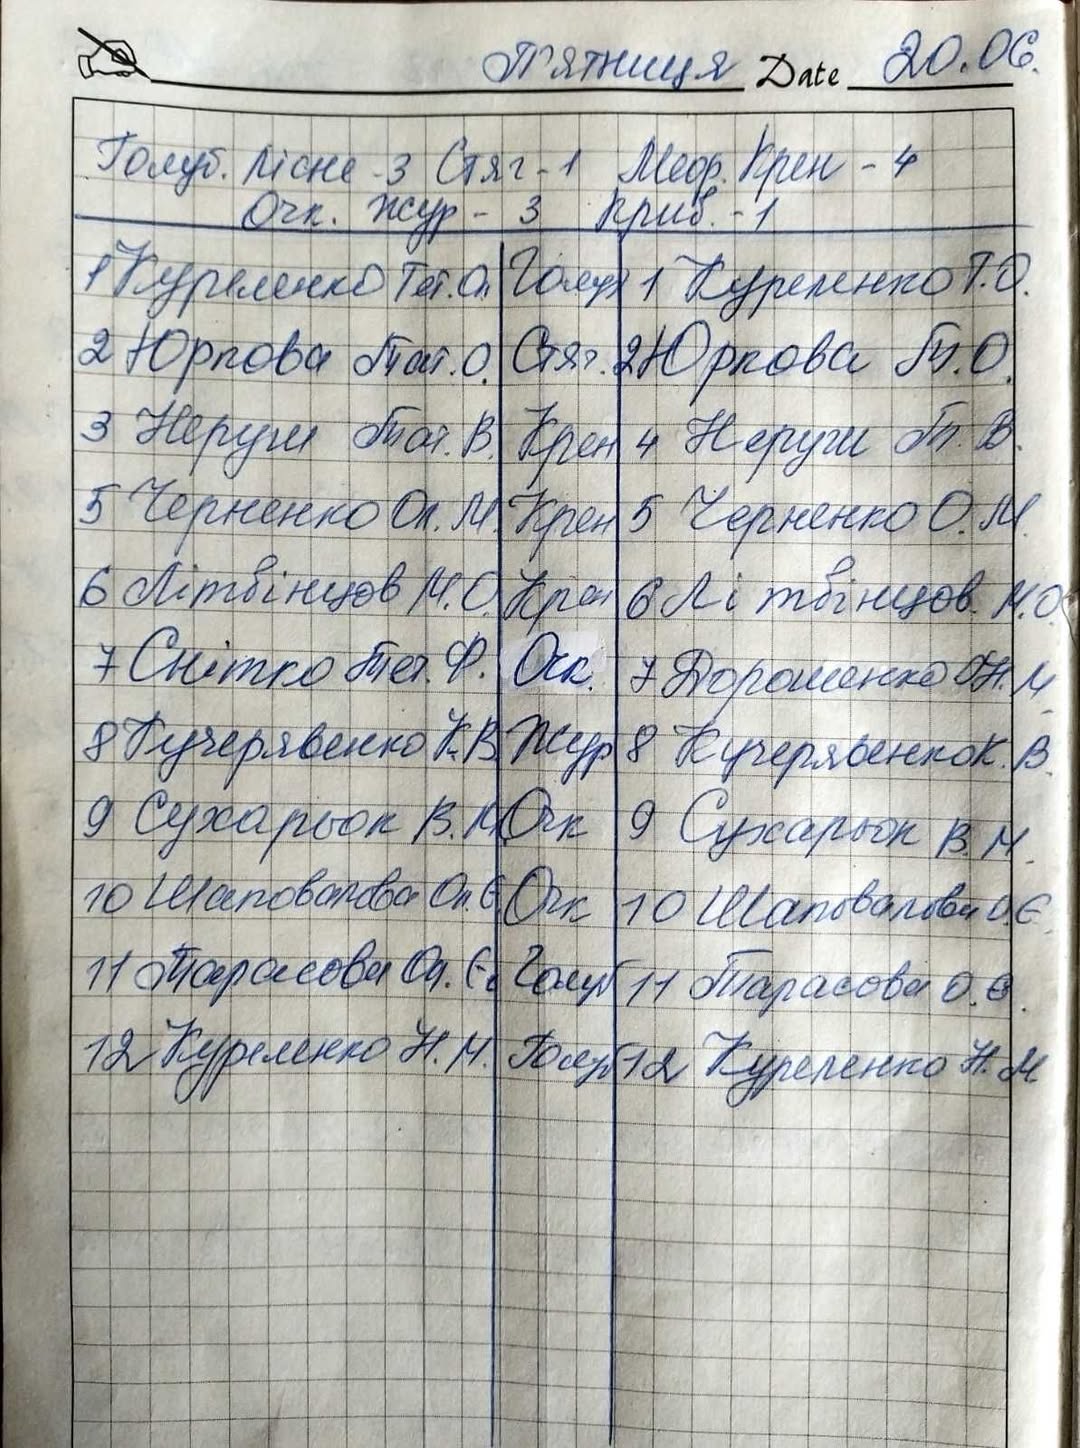 П'ятниця Date 20.06.
Голуб. Лісне -3 Стяг-1 Мефр. Крен - 4
Очк. Жур - 3 Крив. -1
1 Куреленко Тет.О. Голуб 1 Куреленко Т.О.
2 Юркова Тат.О. Стяг. 2 Юркова Т.О.
3 Неруш Тат.В. Крен 4 Неруш Т.В.
5 Черненко Ол.М. Крен 5 Черненко О.М.
6 Літвінцов М.О. Крен 6 Літвінцов М.О.
7 Снітко Тет.Ф. Очк. 7 Дорошенко Н.М
8 Кучерявенко К.В Жур 8 Кучерявенко К.В.
9 Сухарьок В.М Очк 9 Сухарьок В.М.
10 Шаповалова Ол.Є Очк 10 Шаповалова О.Є.
11 Тарасова Ол.Є. Голуб 11 Тарасова О.Є.
12 Куреленко Н.М. Голуб 12 Куреленко Н.М